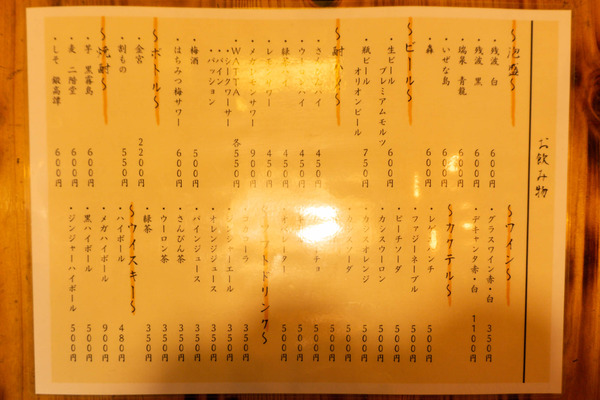 お飲み物
〜泡盛〜
残波 白 600円
残波 黒 600円
瑞泉 青龍 600円
いぜな島 600円
森 600円
〜ビール〜
生ビール 600円
プレミアムモルツ
瓶ビール 750円
オリオンビール
450円
450円
450円
レモンサワー 450円
メガ サワー 900円
WATTA 各550円
・シークワーサー
・パイン
・パッション
梅酒 500円
はちみつ梅サワー 600円
〜ボトル〜
金宮 2200円
割もの 550円
〜焼酎〜
芋 黒霧島 600円
麦 二階堂 600円
しそ 鍛高譚 600円
〜ワイン〜
グラスワイン赤・白 350円
デキャンタ赤・白 1100円
〜カクテル〜
500円
ファジーネーブル 500円
ピーチソーダ 500円
カシスウーロン 500円
カシスオレンジ 500円
500円
500円
500円
500円
ドリンク〜
コーラ 350円
ジンジャーエール 350円
オレンジジュース 350円
パインジュース 350円
さんぴん茶 350円
ウーロン茶 350円
緑茶 350円
〜ウイスキー〜
ハイボール 480円
メガハイボール 900円
黒ハイボール 500円
ジンジャーハイボール 500円